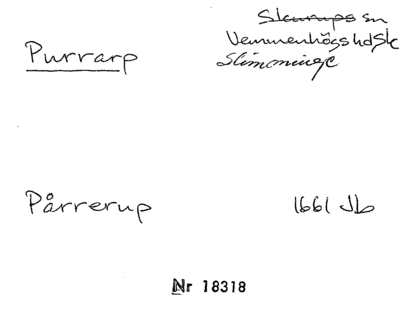 Skurups sn
Purrarp
Vemmenhögs hd Sk
Slimminge
Pårrerup
1661 Jb
Nr 18318